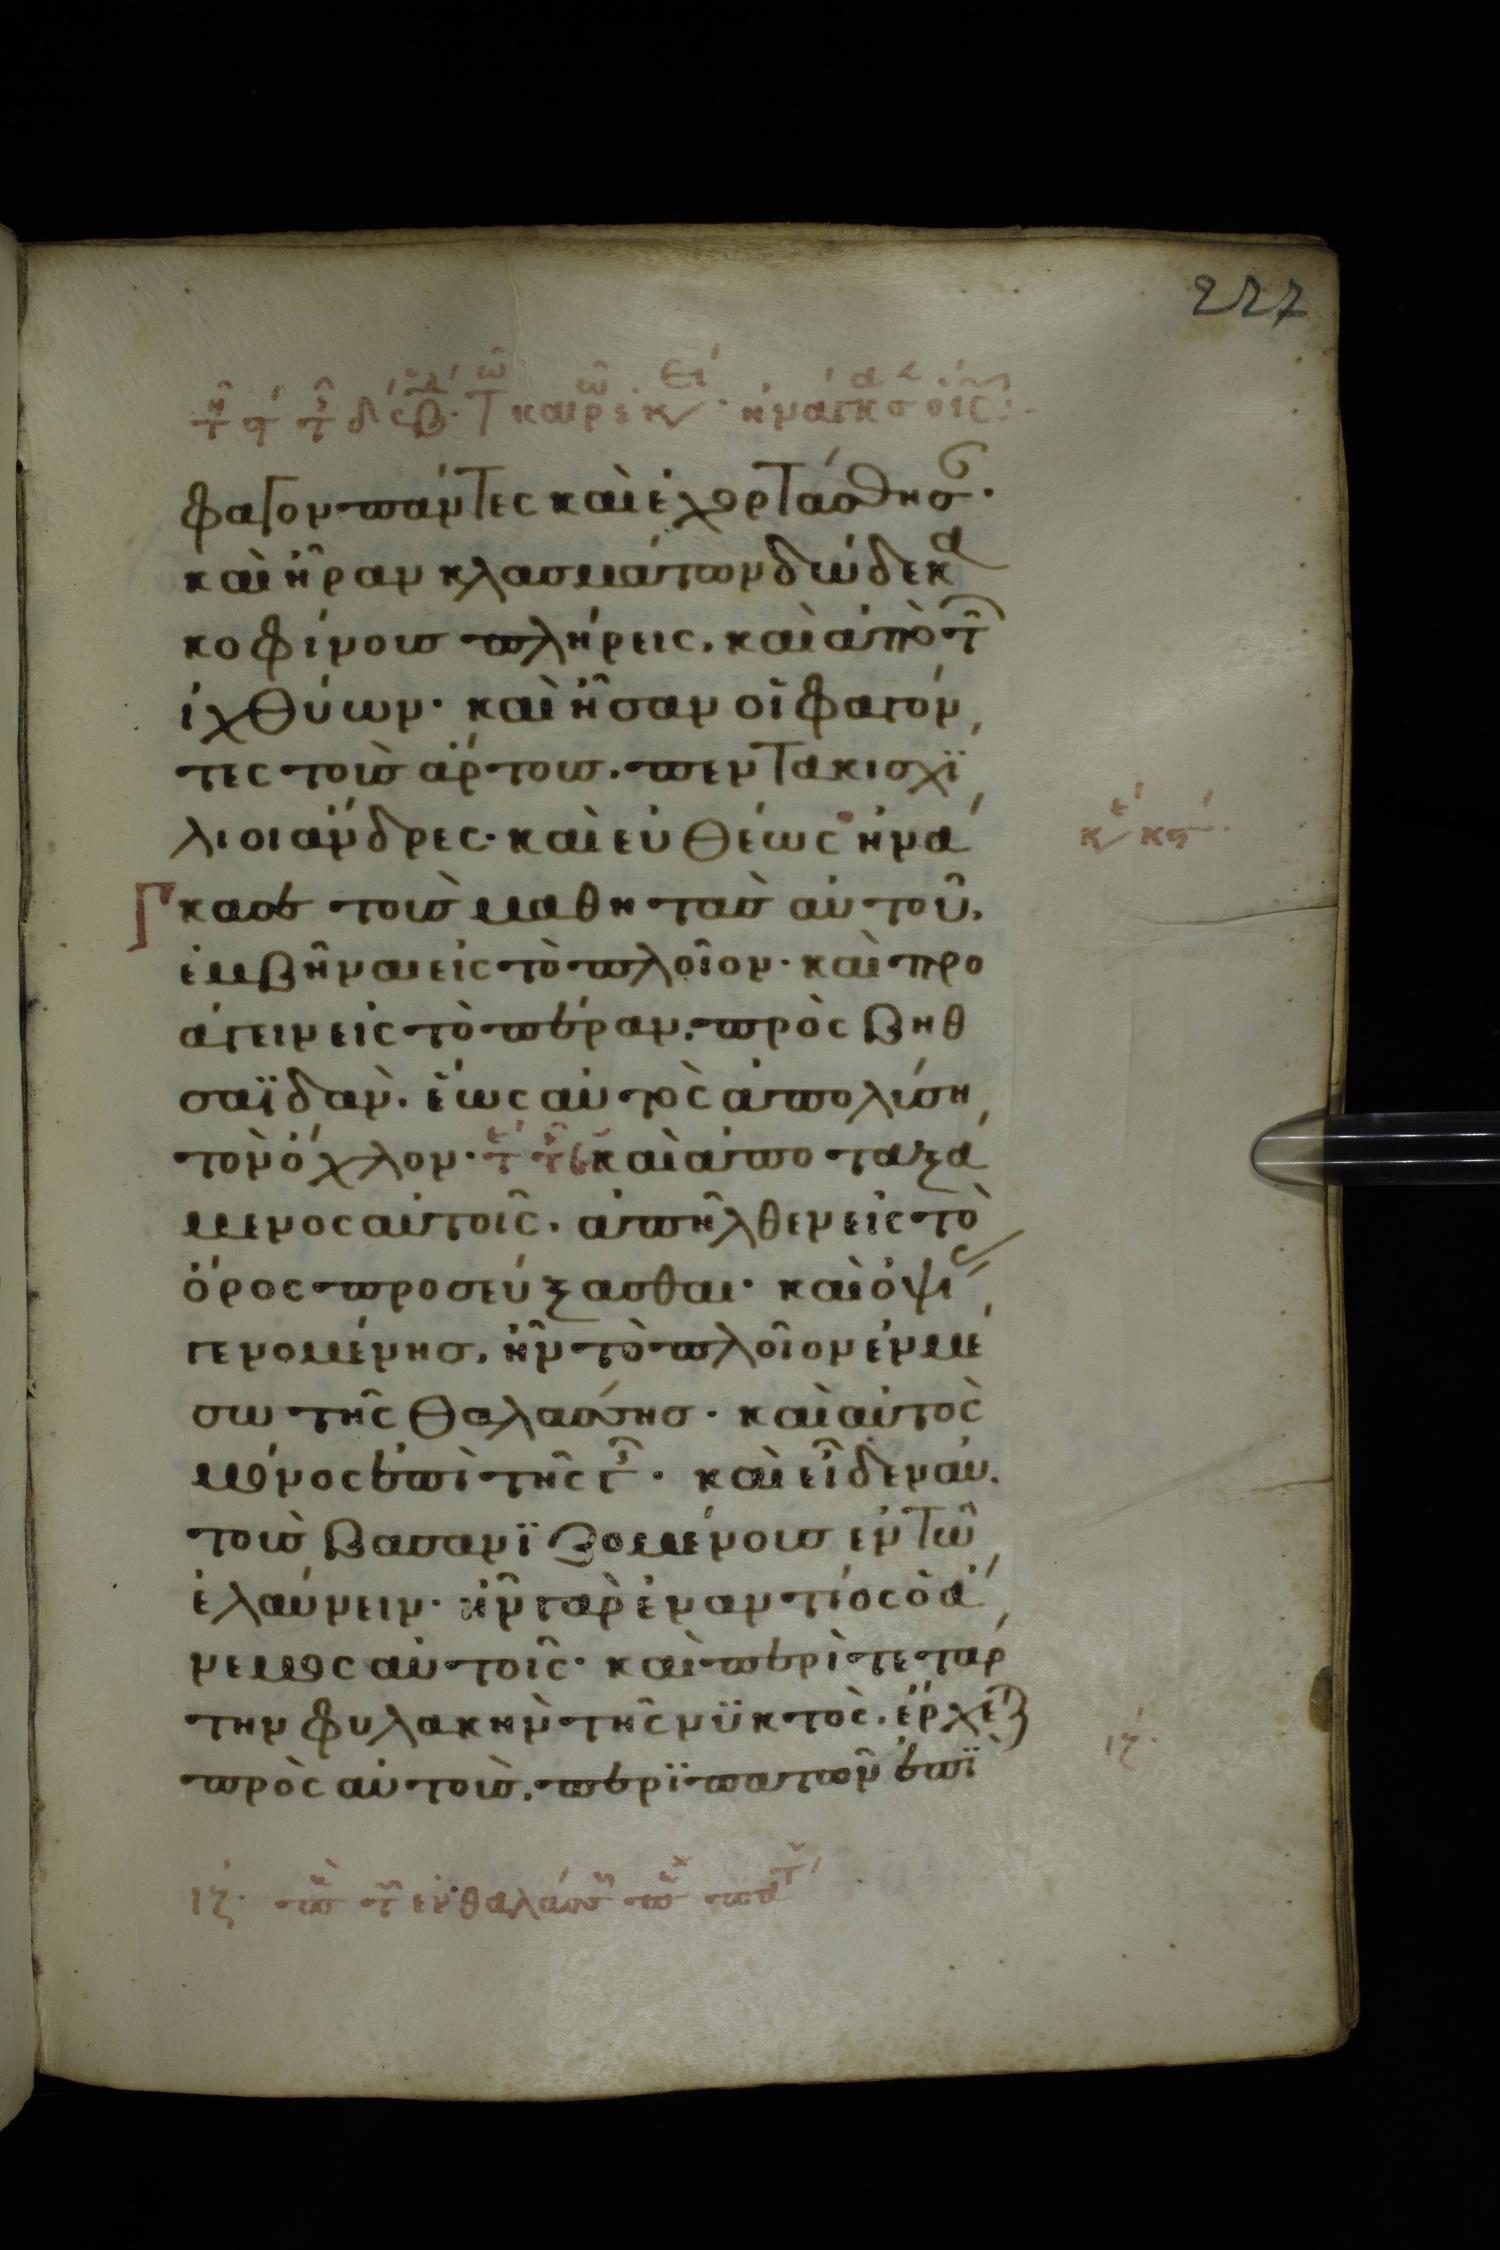 227
φαγον πάντες καὶ ἐχορτάσθησ
καὶ ἦραν κλασμάτων δώδεκα
κοφίνους πλήρεις, καὶ ἀπὸ τ
ἰχθύων· καὶ ἦσαν οἱ φαγόν
τες τοὺς ἄρτους. πεντακισχϊ
λιοι ἄνδρες· καὶ εὐθέως ἠνά
γκασε τοὺς μαθητὰς αὐτοῦ,
ἐμβῆναι εἰς τὸ πλοῖον· καὶ προ
άγειν εἰς τὸ πέραν. πρὸς βηθ
σαϊδαν. ἕως αὐτὸς ἀπολύση
τὸν ὄχλον· καὶ ἀποταξά
μενος αὐτοῖς. ἀπῆλθεν εἰς τὸ
ὄρος προσεύξασθαι· καὶ ὀψι
γενομένης, ἦν τὸ πλοῖον ἐν μέ
σω τῆς θαλάσσης· καὶ αὐτὸς
μόνος ἐπὶ τῆς γ· καὶ εἶδεν αὐ
τοὺς βασανϊζομένους ἐν τῶ
ἐλαύνειν· ἦν γὰρ ἐναντίος ὁ ἄ
νεμος αὐτοῖς· καὶ περὶ τετάρ
την φυλακὴν τῆς νϋκτὸς. ἔρχετ
πρὸς αὐτοὺς. περϊπατῶν ἐπϊ
ιζ
ιζ· ἐν θαλάσσ